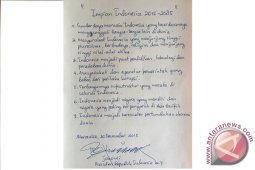 " Impian Indonesia 2015-2085 "
1. Sumber daya manusia Indonesia yang kecerdasannya
mengungguli bangsa-bangsa lain di dunia
2. Masyarakat Indonesia yang menjunjung tinggi
pluralisme, berbudaya, religius dan menjunjung
tinggi nilai-nilai etika
3. Indonesia menjadi pusat pendidikan, teknologi dan
peradaban dunia
4. Masyarakat dan aparatur pemerintah yang
bebas dari perilaku korupsi
5. Terbangunnya infrastruktur yang merata di
seluruh Indonesia
6. Indonesia menjadi negara yang mandiri dan
negara yang paling berpengaruh di Asia Pasifik
7. Indonesia menjadi barometer pertumbuhan ekonomi
dunia
Merauke, 30 Desember 2015
Jokowi
Presiden Republik Indonesia ke-7
antaranews.com